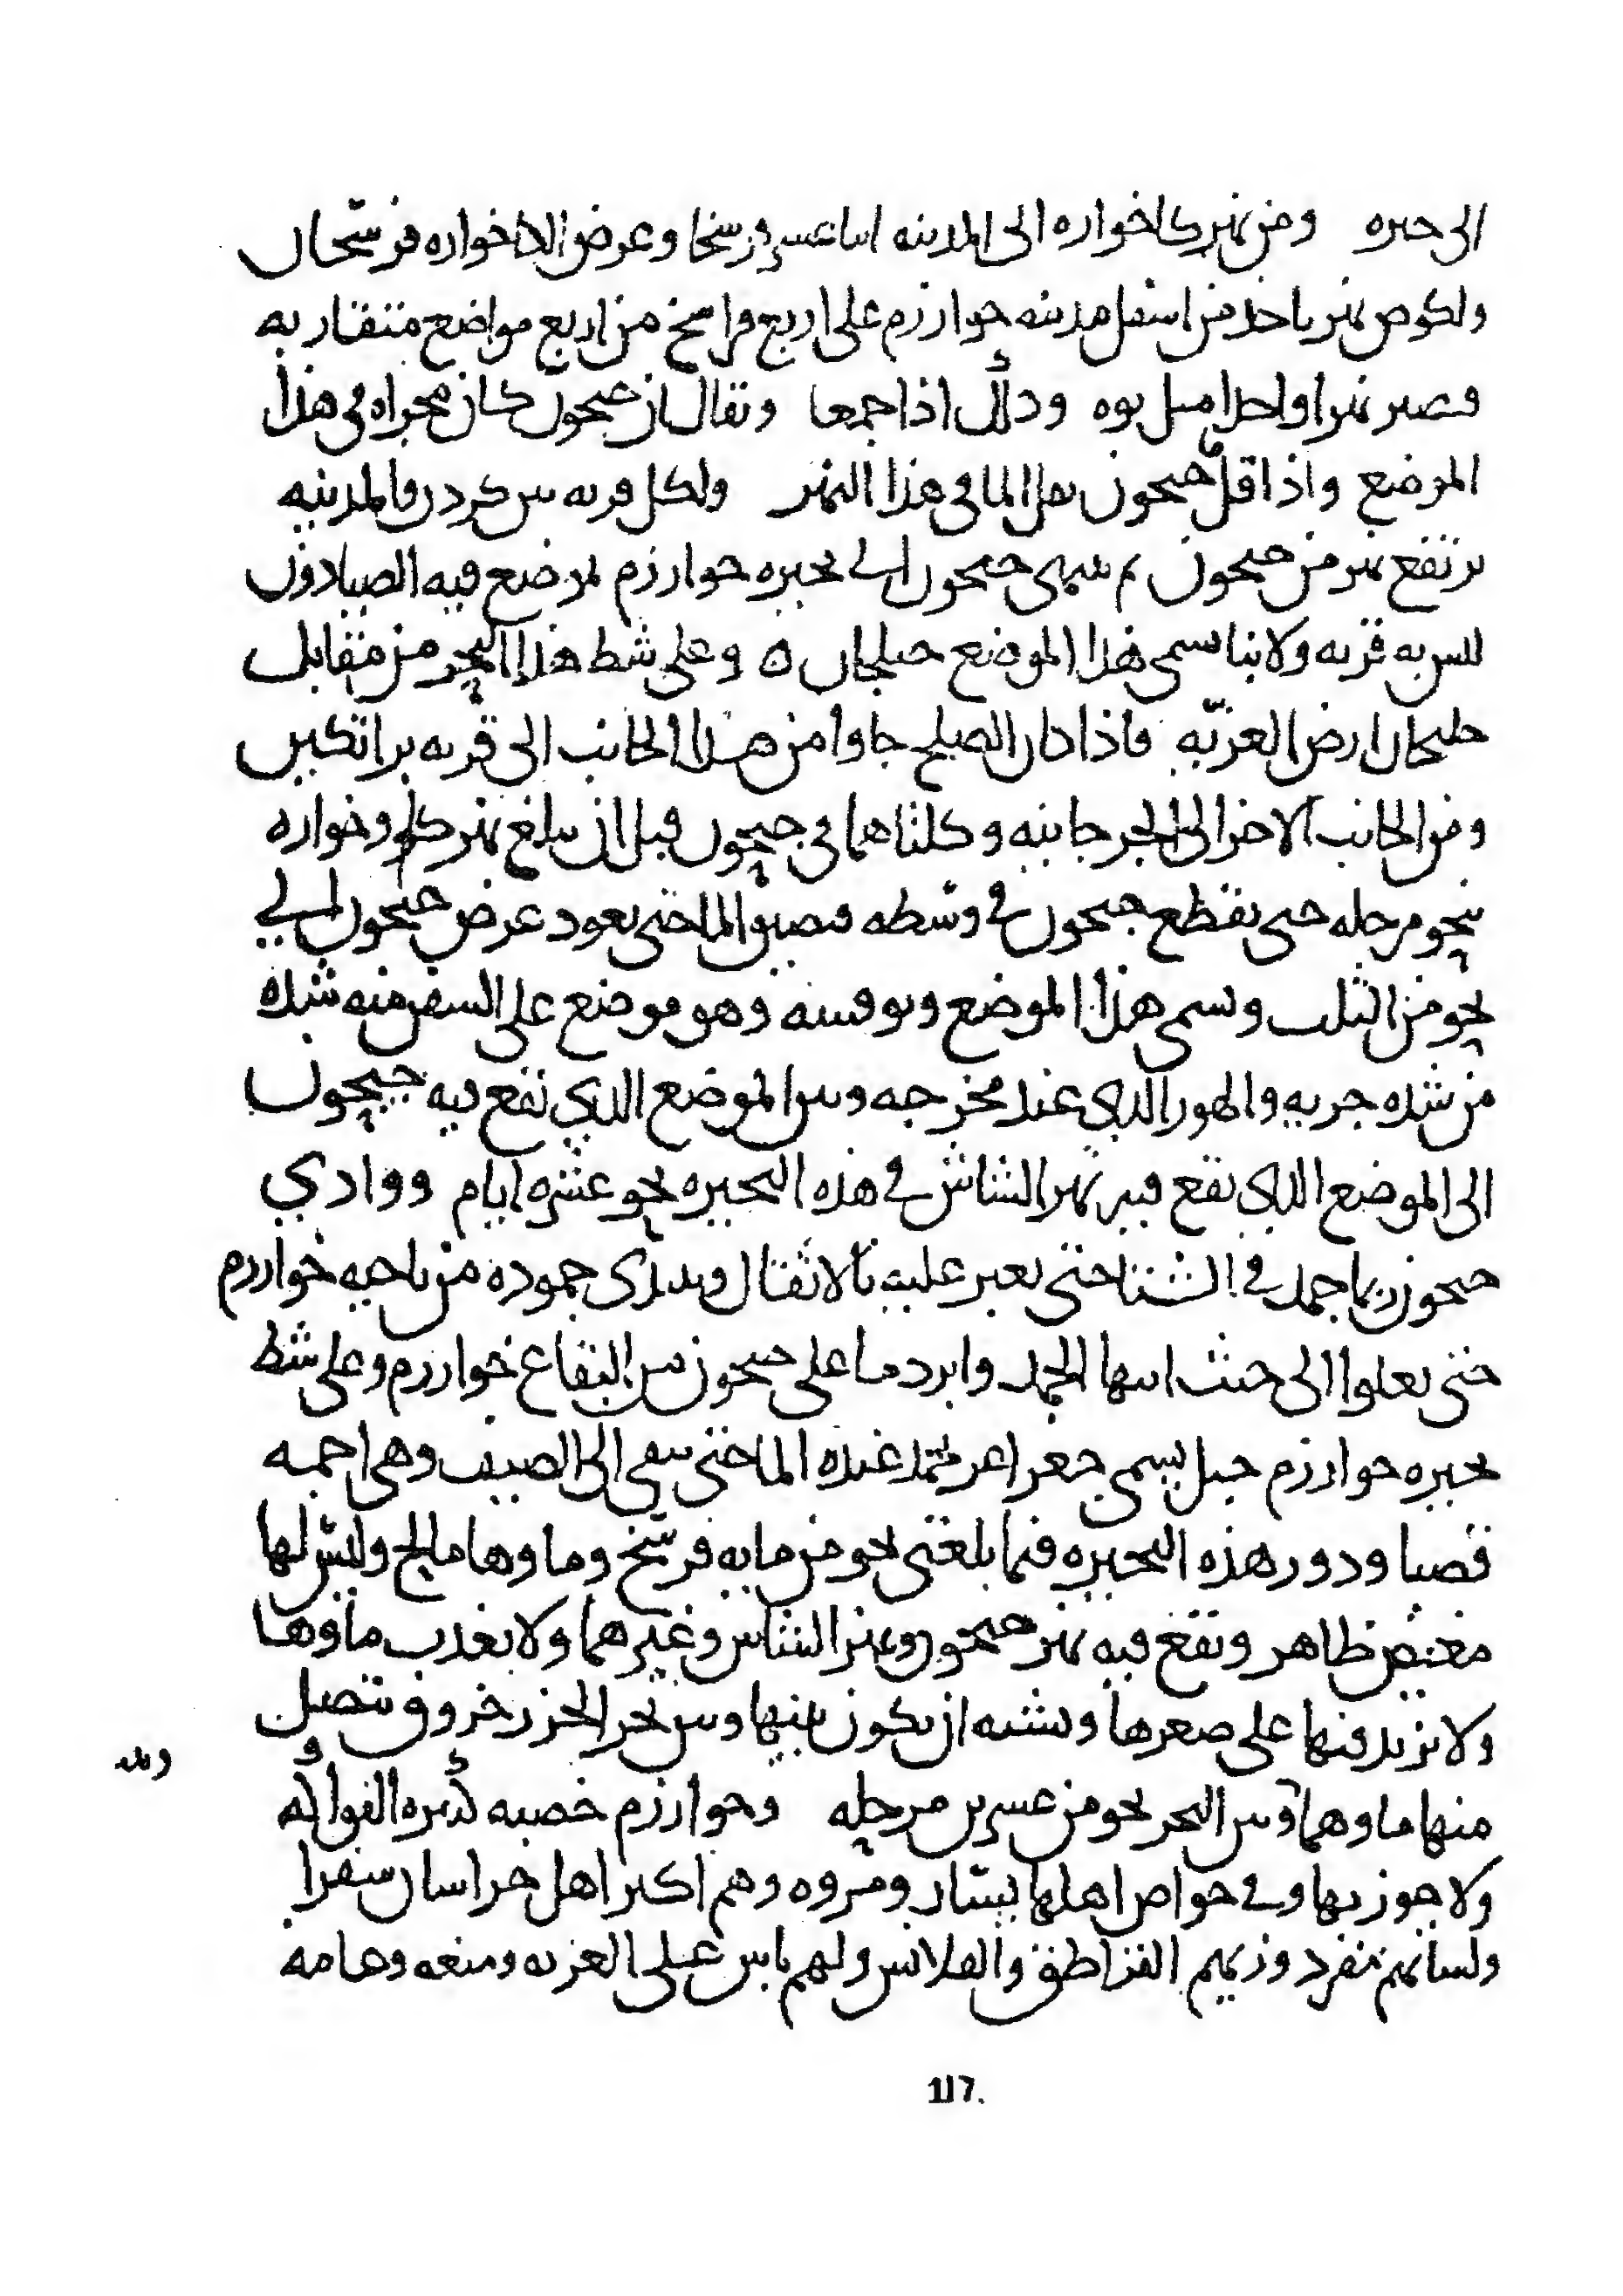 الى حيره ومن نهر كاخواره الى المدينه اثنا عشر فرسخا وعرض الكاخواره فرسخان
ولكوص نهر ياخذ من اسفل مدينه خوارزم على اربع فراسخ من اربع مواضع متقاربه
فيصير نهرا واحدا مثل بوه وذلك اذا جمعا ويقال ان جيحون كان مجراه فى هذا
الموضع واذا قل ما جيحون يقل الما فى هذا النهر ولكل قريه بين كردر والمدينه
يرتفع نهر من جيحون ثم ينتهى جيحون الى بحيره خوارزم لموضع فيه الصيادون
ليس به قريه ولا بنا يسمى هذا الموضع خليجان ه وعلى شط هذا البحر من مقابل
خليجان ارض الغزيه فاذا كان الصلح جاوا من هذا الجانب الى قريه براتكين
ومن الجانب الاخر الى الجرجانيه وكلتاهما فى جيحون قبل ان يبلغ نهر كاوخواره
بنحو مرحله حتى يقطع جيحون فى وسطه فيضيق الما حتى يعود عرض جيحون الى
نحو من الثلث ويسمى هذا الموضع وبوقسه وهو موضع على السفن منه شده
من شده جريه والهور الذى عند مخرجه وبين الموضع الذي يقع فيه جيحون
الى الموضع الذى يقع فيه نهر الشاش فى هذه البحيره نحو عشره ايام ووادي
جيحون ربما جمد فى الشتا حتى يعبر عليه بالاثقال ويبتدى جموده من ناحيه خوارزم
حتى يعلوا الى حيث انتها الجمد وابرد ما على جيحون من البقاع خوارزم وعلى شط
بحيره خوارزم جبل يسمى جغراغر يجمد عنده الما حتى يبقى الى الصيف وهى اجمه
قصبا ودور هذه البحيره فيما بلغنى نحو من مايه فرسخ وماوها مالح وليس لها
مغيض ظاهر ويقع فيه نهر جيحون ونهر الشاس وغيرهما ولا يعذب ماوها
ولا يزيد فيها على صغرها ويشبه ان يكون بينها وبين بحر الخزر خروق يتصل
منها ماوهما وبين البحر نحو من عشرين مرحله وخوارزم خصبه كثيره الفواكه
ولا جوز بها وفى خواص اهلها يسار ومروه وهم اكثر اهل خراسان سفرا
ولسانهم منفرد وزيهم القراطق والقلانس ولهم باس على الغزيه ومنعه وعامه
117.